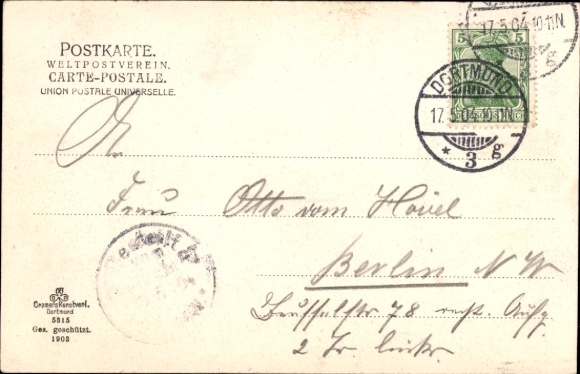 POSTKARTE.
WELTPOSTVEREIN.
CARTE-POSTALE.
UNION POSTALE UNIVERSELLE.
5 5
17.5.04.10-11N
g
DORTMUND
17.5.04.10-11N
* 3 g
An
Frau Otto vom Hövel
Berlin N W
78
2 Tr. links.
Cramers Kunstverl.
Dortmund
5315
Ges. geschützt.
1903